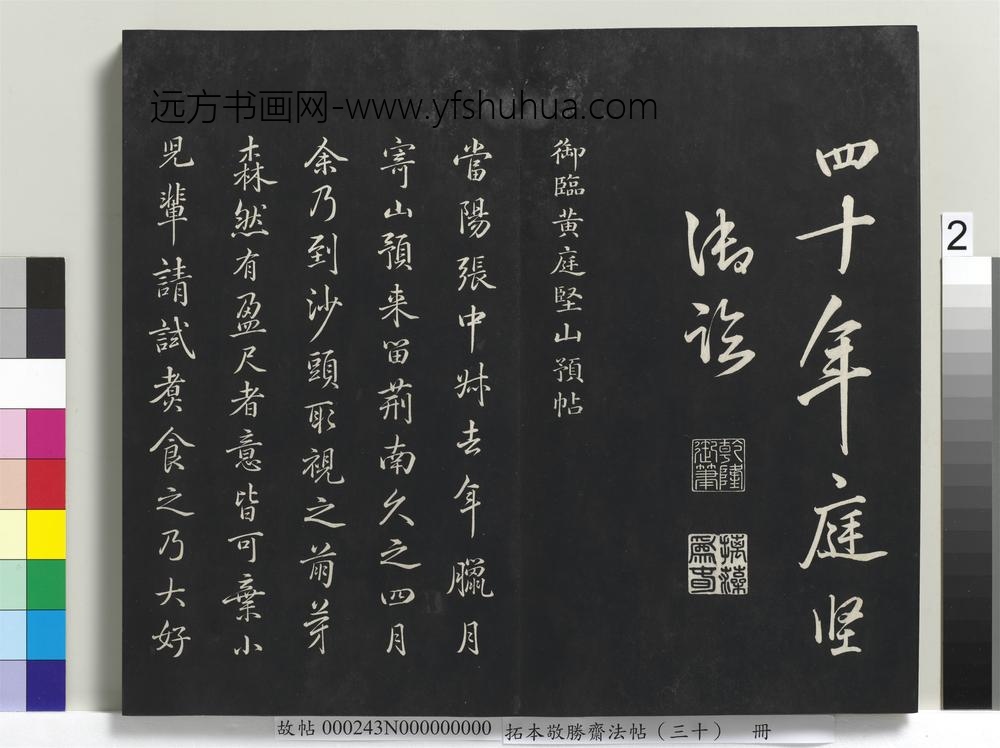 远方书画网-www.yfshuhua.com
四十年庭坚
御臨
乾隆御筆
御臨黄庭堅山預帖
當陽張中叔去年臘月
寄山預来留荆南久之四月
余乃到沙頭取視之萠芽
森然有盈尺者意皆可棄小
児輩請試煑食之乃大好
2
故帖 000243N000000000 拓本敬勝齋法帖（三十） 冊